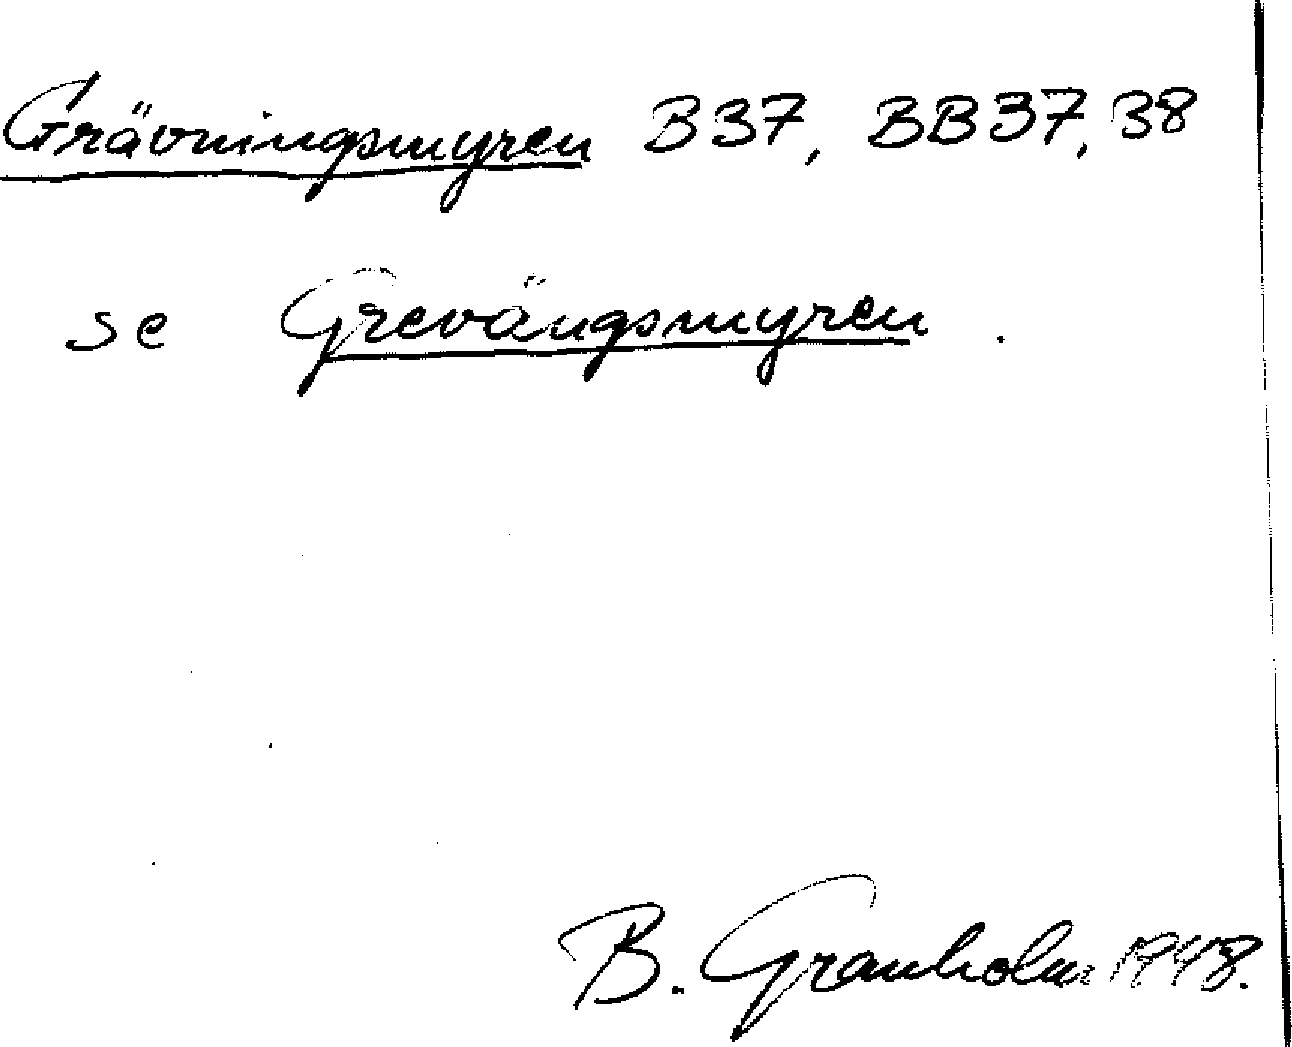 Grävningsmyren B37, BB37, 38
se Grevängsmyren.
B. Granholm 1948.